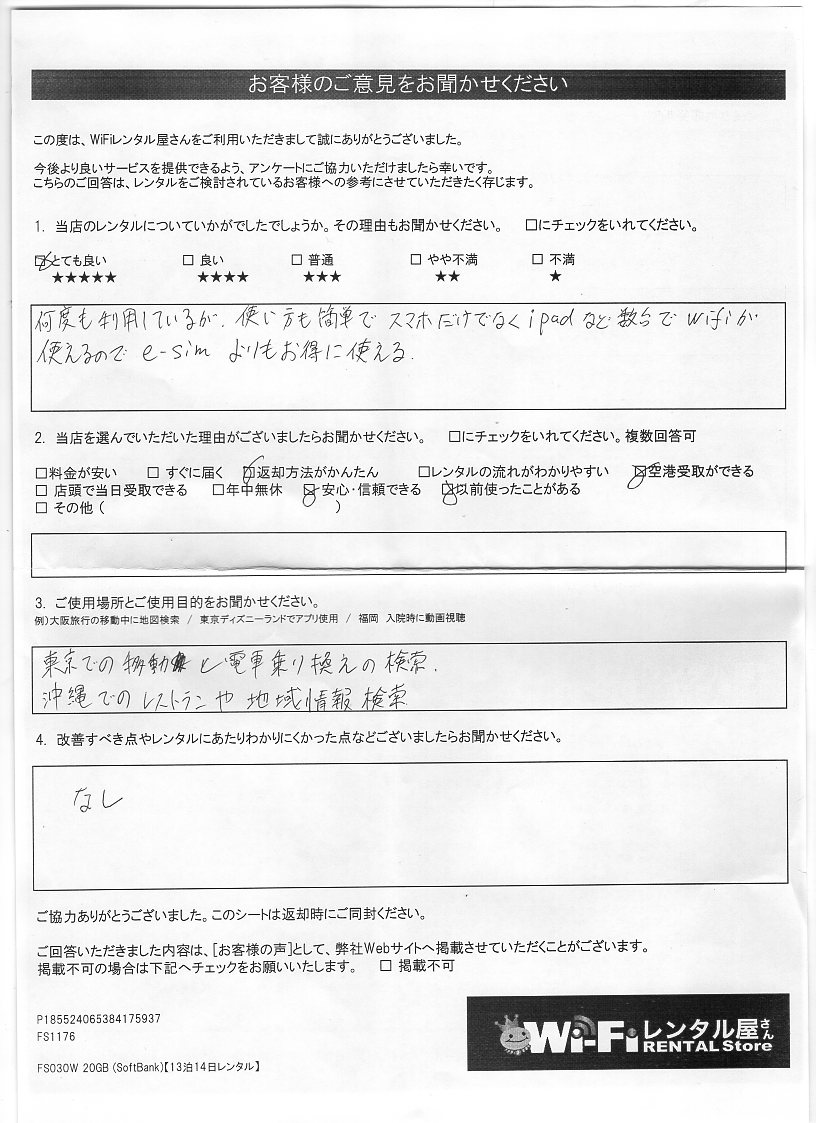 お客様のご意見をお聞かせください
この度は、WiFiレンタル屋さんをご利用いただきまして誠にありがとうございました。
今後より良いサービスを提供できるよう、アンケートにご協力いただけましたら幸いです。
こちらのご回答は、レンタルをご検討されているお客様への参考にさせていただきたく存じます。
1. 当店のレンタルについていかがでしたでしょうか。その理由もお聞かせください。 □にチェックをいれてください。
☑とても良い □ 良い □ 普通 □ やや不満 □ 不満
★★★★★ ★★★★ ★★★ ★★ ★
何度も利用しているが、使い方も簡単で スマホだけでなく ipadなど 数台で wifiが
使えるので e-sim よりもお得に使える.
2. 当店を選んでいただいた理由がございましたらお聞かせください。 □にチェックをいれてください。複数回答可
□料金が安い □ すぐに届く ☑返却方法がかんたん □レンタルの流れがわかりやすい ☑空港受取ができる
□ 店頭で当日受取できる □年中無休 ☑ 安心・信頼できる ☑以前使ったことがある
□ その他 ( )
3. ご使用場所とご使用目的をお聞かせください。
例)大阪旅行の移動中に地図検索 / 東京ディズニーランドでアプリ使用 / 福岡 入院時に動画視聴
東京での 移動 と電車乗り換えの検索.
沖縄でのレストランや 地域情報 検索
4. 改善すべき点やレンタルにあたりわかりにくかった点などございましたらお聞かせください。
なし
ご協力ありがとうございました。このシートは返却時にご同封ください。
ご回答いただきました内容は、[お客様の声]として、弊社Webサイトへ掲載させていただくことがございます。
掲載不可の場合は下記へチェックをお願いいたします。 □ 掲載不可
P185524065384175937
FS1176
FS030W 20GB (SoftBank)【13泊14日レンタル】
Wi-Fiレンタル屋さん
RENTAL Store